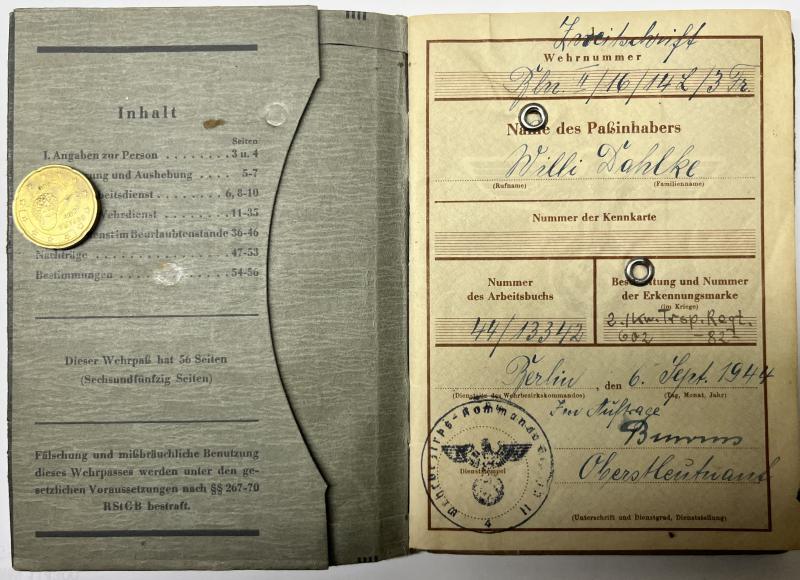 Inhalt
Seiten
I. Angaben zur Person . . . . . . . 3 u. 4
ung und Aushebung . . . . 5-7
beitsdienst . . . . . . 6, 8-10
Wehrdienst . . . . . . . 11-35
enst im Beurlaubtenstande 36-46
Nachträge . . . . . . . . . . . 47-53
Bestimmungen . . . . . . . . . 54-56
Dieser Wehrpaß hat 56 Seiten
(Sechsundfünfzig Seiten)
Fälschung und mißbräuchliche Benutzung
dieses Wehrpasses werden unter den ge-
setzlichen Voraussetzungen nach §§ 267-70
RStGB bestraft.
Zweitschrift
Wehrnummer
Bln. II/16/14 2/3 Tr.
Name des Paßinhabers
Willi Dahlke
(Rufname) (Familienname)
Nummer der Kennkarte
Nummer
des Arbeitsbuchs
44/13342
Beschriftung und Nummer
der Erkennungsmarke
(im Kriege)
2./Kw. Trsp. Regt.
602 -82-
Berlin, den 6. Sept. 1944
(Dienststelle des Wehrbezirkskommandos) (Tag, Monat, Jahr)
Im Auftrage
Oberstleutnant
Wehrbezirks-Kommando Berlin II
Dienststempel
4
(Unterschrift und Dienstgrad, Dienststellung)